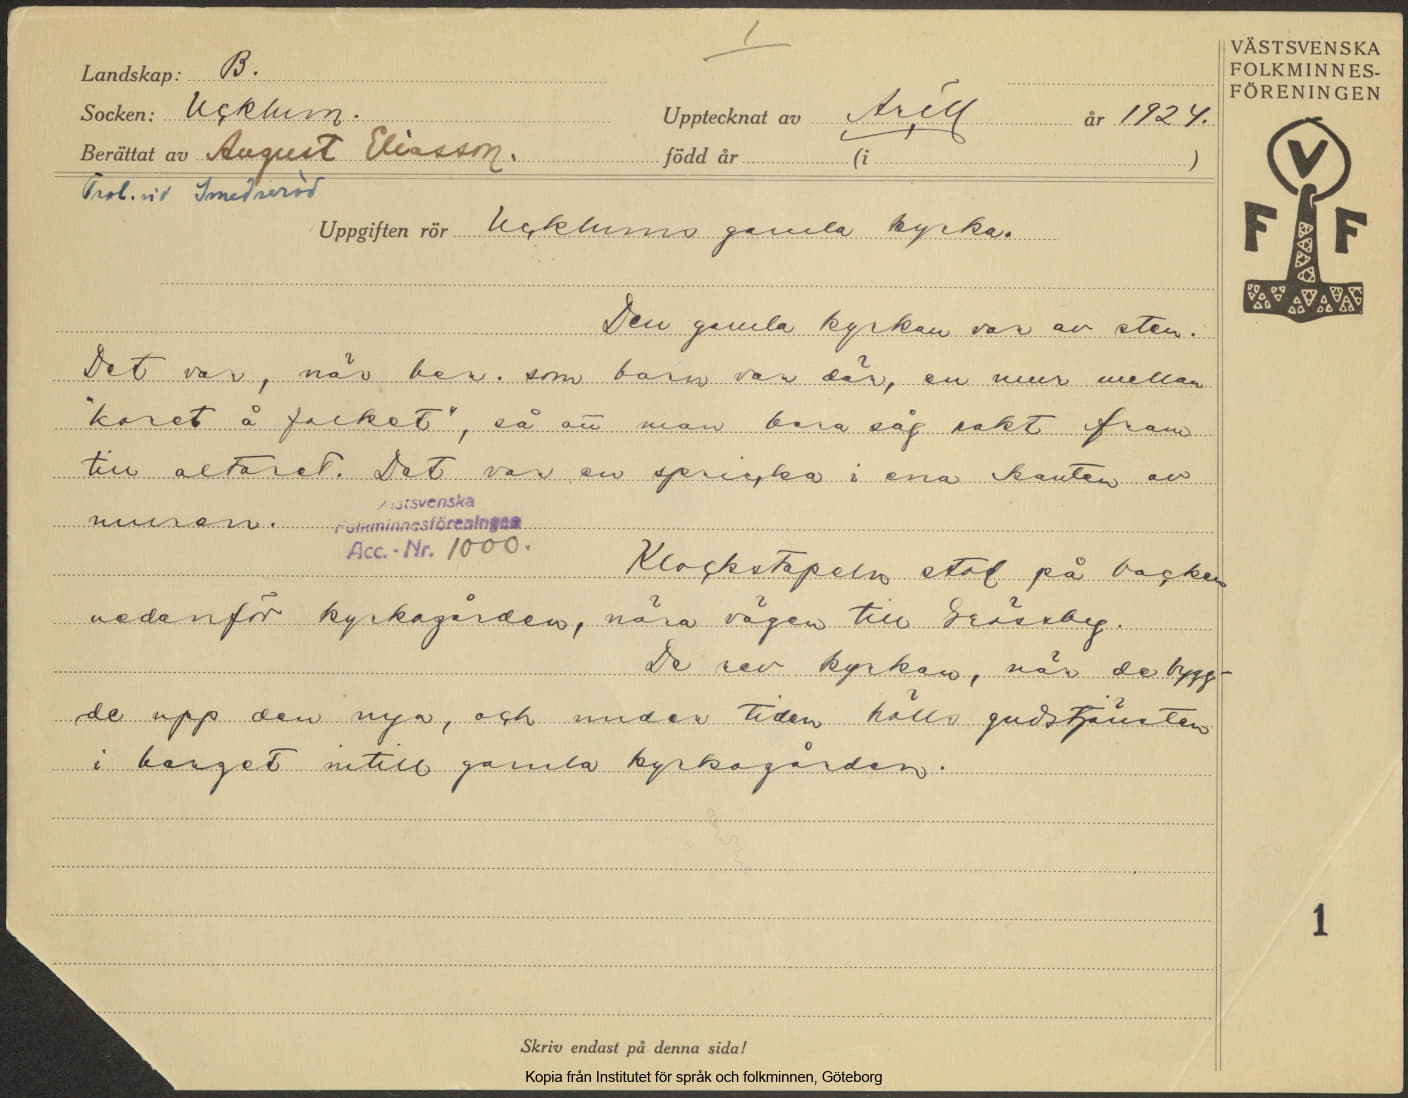 1
VÄSTSVENSKA
FOLKMINNES-
FÖRENINGEN
Landskap: B.
Socken: Ucklum.
Upptecknat av Arill år 1924.
Berättat av August Eliasson.
född år (i )
Trol. vid Smedseröd
Uppgiften rör Ucklums gamla kyrka.
V
F F
Den gamla kyrkan var av sten.
Det var, när ber. som barn var där, en mur mellan
"koret å folket", så att man bara såg rakt fram
till altaret. Det var en spricka i ena kanten av
muren.
Västsvenska
Folkminnesföreningen
Acc.-Nr. 1000.
Klockstapeln stod på backen
nedanför kyrkogården, nära vägen till Grössby.
De rev kyrkan, när de bygg-
de upp den nya, och under tiden hölls gudstjänsten
i berget intill gamla kyrkogården.
1
Skriv endast på denna sida!
Kopia från Institutet för språk och folkminnen, Göteborg